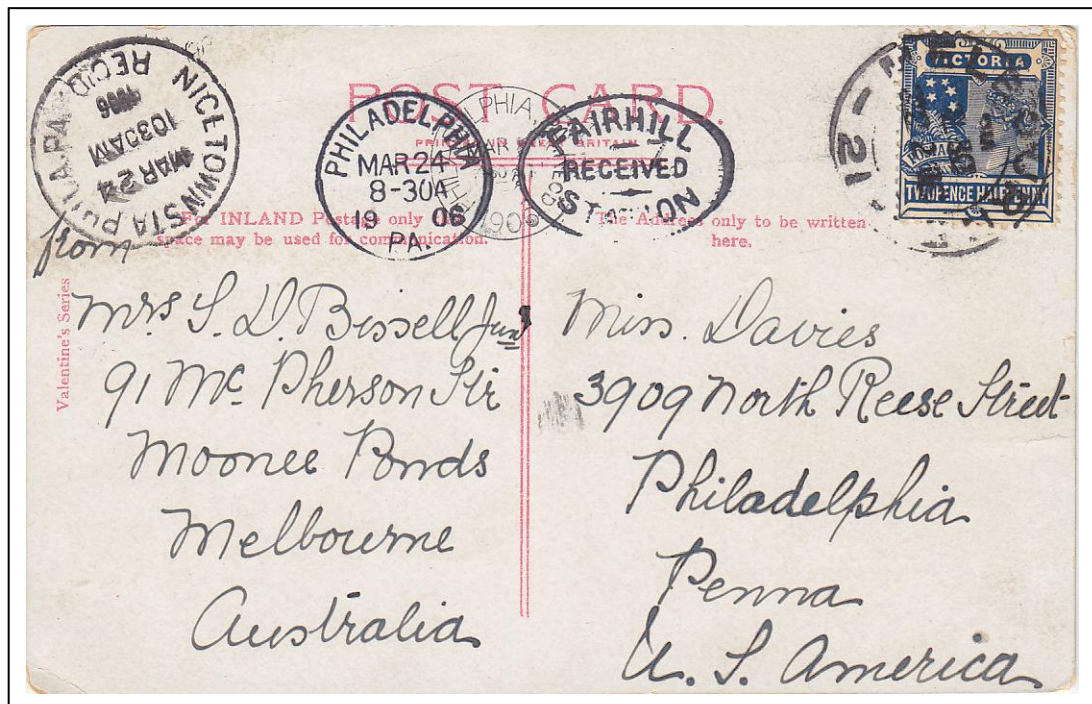 POST CARD
PRINTED IN GREAT BRITAIN
NICETOWN STA. PHILA. PA.
REC'D
MAR 24
10 30 AM
1906
PHILADELPHIA
MAR 24
8-30A
19 06
PA.
1906
FAIRHILL
RECEIVED
STATION
VICTORIA
TWOPENCE HALFPENNY
For INLAND Postage only
space may be used for communication.
The Address only to be written
here.
Valentine's Series
from
Mrs S. D. Bissell Junr
91 Mc Pherson Str
Moonee Ponds
Melbourne
Australia
Miss. Davies
3909 North Reese Street
Philadelphia
Penna
U. S. America